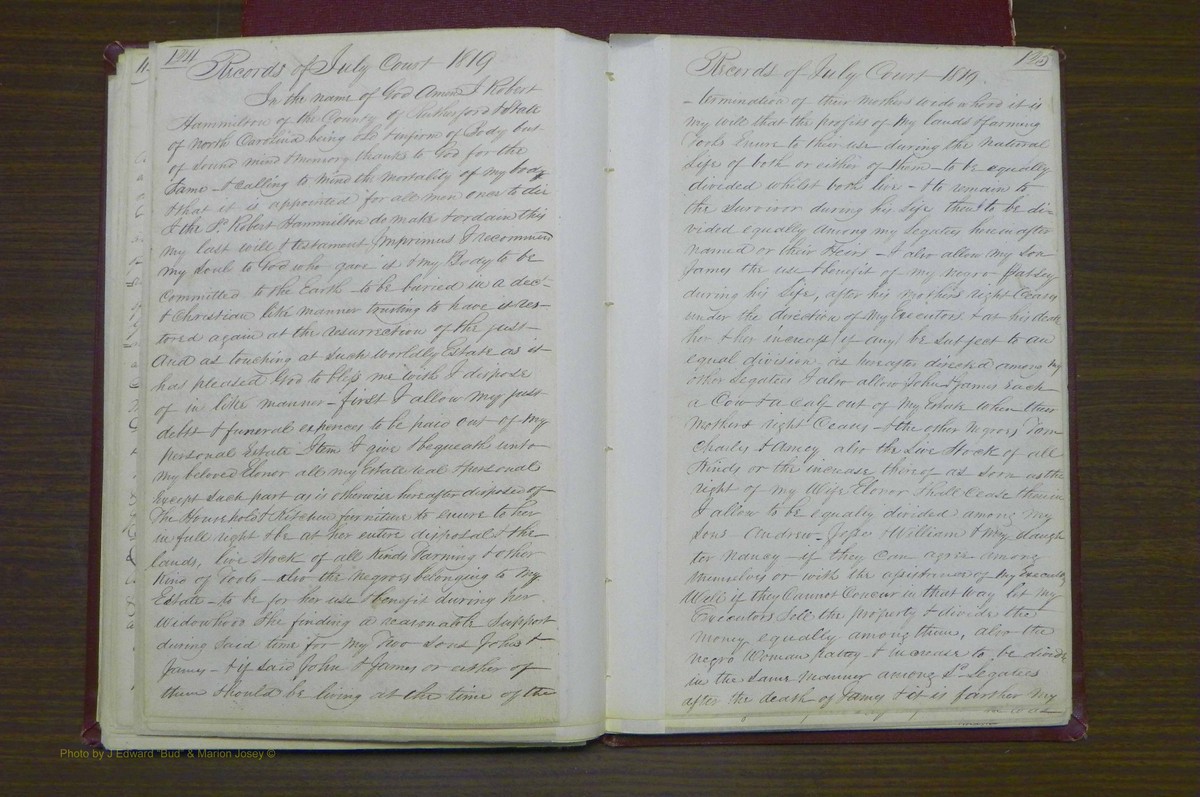 124
Records of July Court 1819
In the name of God Amen I Robert
Hammilton of the County of Rutherford & State
of North Carolina being old & infirm of Body but
of sound mind & memory thanks to God for the
Same – & calling to mind the mortality of my body
& that it is appointed for all men once to die
I the Sd. Robert Hammilton do make & ordain this
my last will & testament Imprimus I recommend
my Soul to God who gave it & my Body to be
Committed to the Earth – to be buried in a dect
& Christian like manner trusting to have it res-
tored again at the resurrection of the just –
And as touching at such worldly Estate as it
has pleased God to bless me with I dispose
of in like manner – first I allow my just
debts & funeral expences to be paid out of my
personal Estate – Item I give & bequeath unto
my beloved Elonor all my Estate real & personal
Except such part as is otherwise hereafter disposed of
The Household & Kitchen furniture to enure to her
in full right & be at her entire disposal & the
lands, live Stock of all kinds Farming & other
Kind of Tools – also the Negroes belonging to my
Estate – to be for her use & benefit during her
Widowhood She finding a reasonable Support
during said time for my Two sons John &
James – & if said John & James or either of
them should be living at the time of the
125
Records of July Court 1819.
– termination of their Mothers widowhood it is
my will that the profits of my lands & farming
Tools Enure to their use during the natural
Life of both or either of them – to be equally
divided whilst both live – & to remain to
the Survivor during his Life, then to be di-
vided equally among my Legatees hereinafter
named or their Heirs – I also allow my Son
James the use & benefit of my negro
during his Life, after his mothers right Ceases
under the direction of my Executors & at his death
her & her increase (if any) be Subject to an
equal division as hereafter directed among my
other Legatees I also allow John & James Each
a Cow & a calf out of my Estate when their
Mothers right Ceases – & the other Negroes Tom
Charles & Amey also the Live Stock of all
Kinds or the increase thereof as soon as the
right of my Wife Elonor Shall Cease therein
I allow to be equally divided among my
Sons – Andrew – Jesse & William & my daugh
ter Nancy – if they Can agree among
themselves or with the assistance of my Executors
Well if they Cannot Concur in that way let my
Executors Sell the property & divide the
money equally among them, also the
negro Woman & increase to be divided
in the Same Manner among Sd. Legatees
after the death of James & it is farther my
Photo by J Edward "Bud" & Marion Josey ©